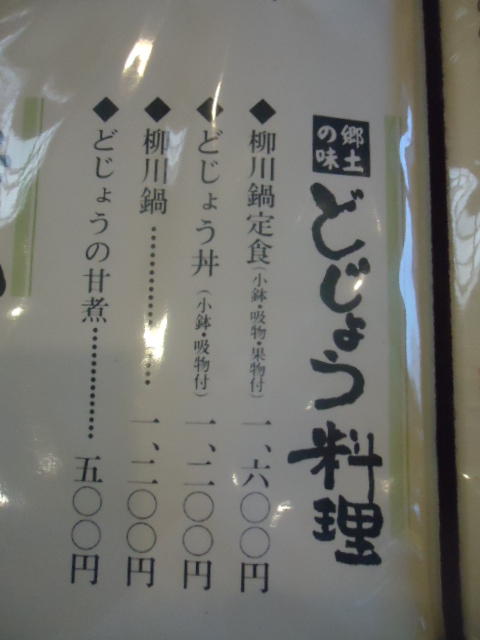 郷土の味
どじょう料理
◆柳川鍋定食(小鉢・吸物・果物付)一、六〇〇円
◆どじょう丼(小鉢・吸物付)一、二〇〇円
◆柳川鍋………………一、二〇〇円
◆どじょうの甘煮………………五〇〇円